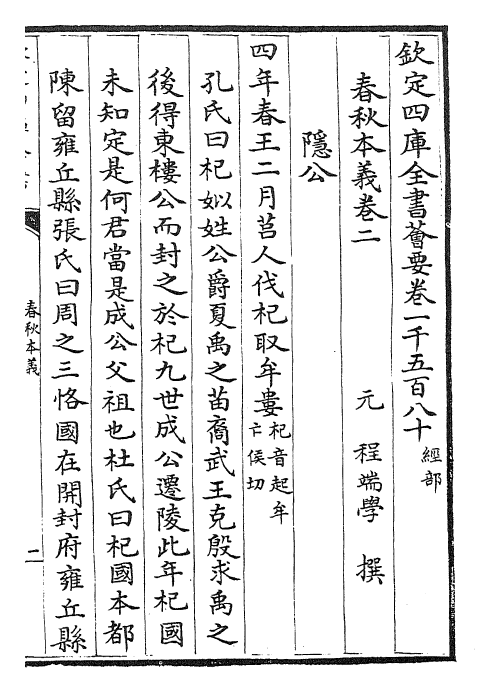 欽定四庫全書薈要卷一千五百八十 經部
春秋本義卷二
元 程端學 撰
隱公
四年春王二月莒人伐杞取牟婁 杞音起牟亡侯切
孔氏曰杞姒姓公爵夏禹之苗裔武王克殷求禹之
後得東樓公而封之於杞九世成公遷陵此年杞國
未知定是何君當是成公父祖也杜氏曰杞國本都
陳留雍丘縣張氏曰周之三恪國在開封府雍丘縣
春秋本義
二